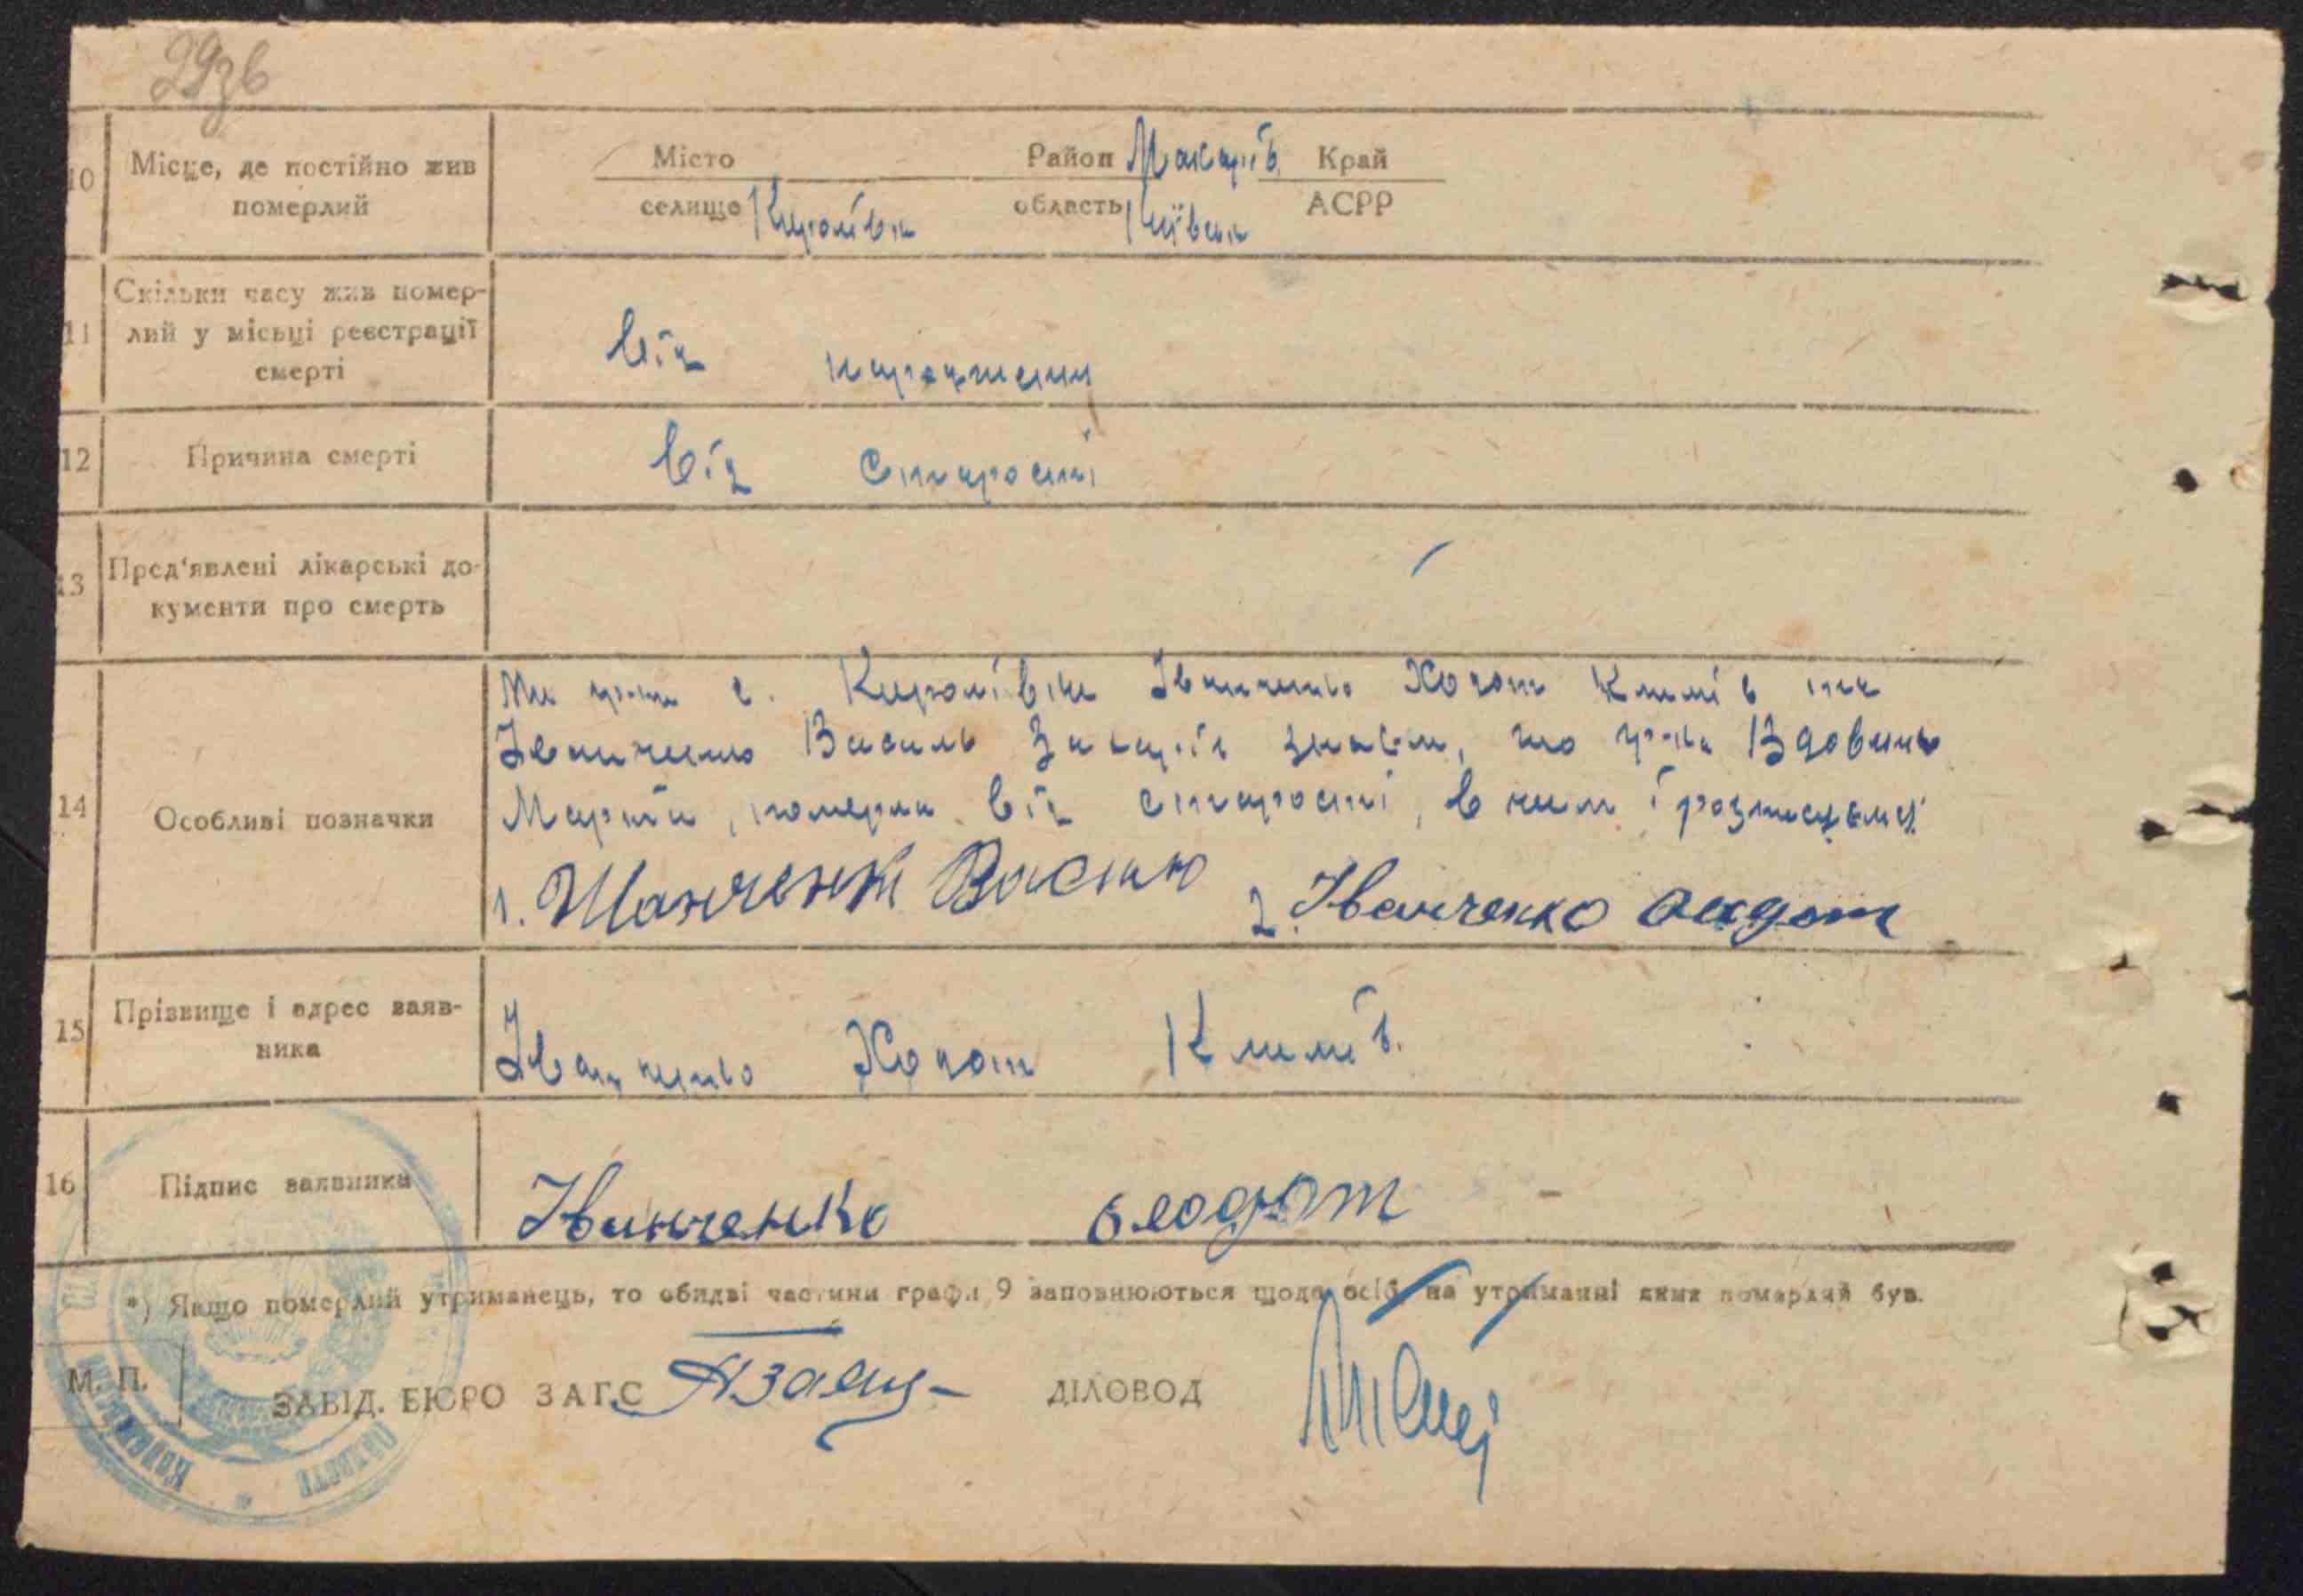 29зв
10 Місце, де постійно жив померлий
Місто Район Макарів. Край
селище Королівка область Київськ АСРР
11 Скільки часу жив помер-
лий у місьці реєстрації
смерті
від народження
12 Причина смерті
від старости
13 Пред'явлені лікарські до-
кументи про смерть
14 Особливі позначки
Ми гр-ни с. Королівки Іванченко Ходот Климів та
Іванченко Василь Захарів знаєм, що гр-ка Вдовенко
Марія, померла від старости, в чим і розписуємся
1. Іванченко Василь 2. Іванченко
15 Прізвище і адрес заяв-
ника
Іванченко Ходот Климів.
16 Підпис заявника
Іванченко
*) Якщо померлий утриманець, то обидві частини графи 9 заповнюються щодо осіб, на утриманні яких померлий був.
М. П.
ЗАВІД. БЮРО ЗАГС ДІЛОВОД